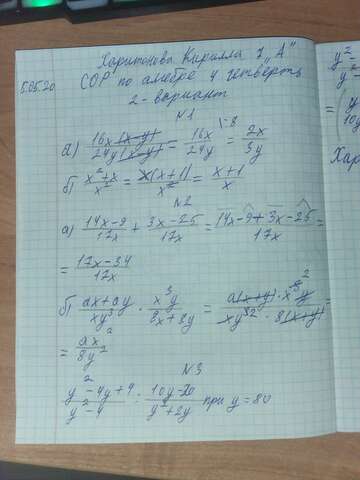 Харитонова Кирилла 7 "А"
5.05.20 СОР по алгебре 4 четверть
2-вариант
№1
а) 16x(x-y)/24y(x-y) = 16x/24y \-8 = 2x/3y
б) x²+x/x² = x(x+1)/x² = x+1/x
№2
а) 14x-9/17x + 3x-25/17x = 14x-9+3x-25/17x =
= 17x-34/17x
б) ax+ay/xy³ · x³y/8x+8y = a(x+y)·x³y/xy³·8(x+y) =
= ax²/8y²
№3
y²-4y+4/y²-4 : 10y-20/y²+2y при y=80
y²-
y²
= (y
10y
Хар